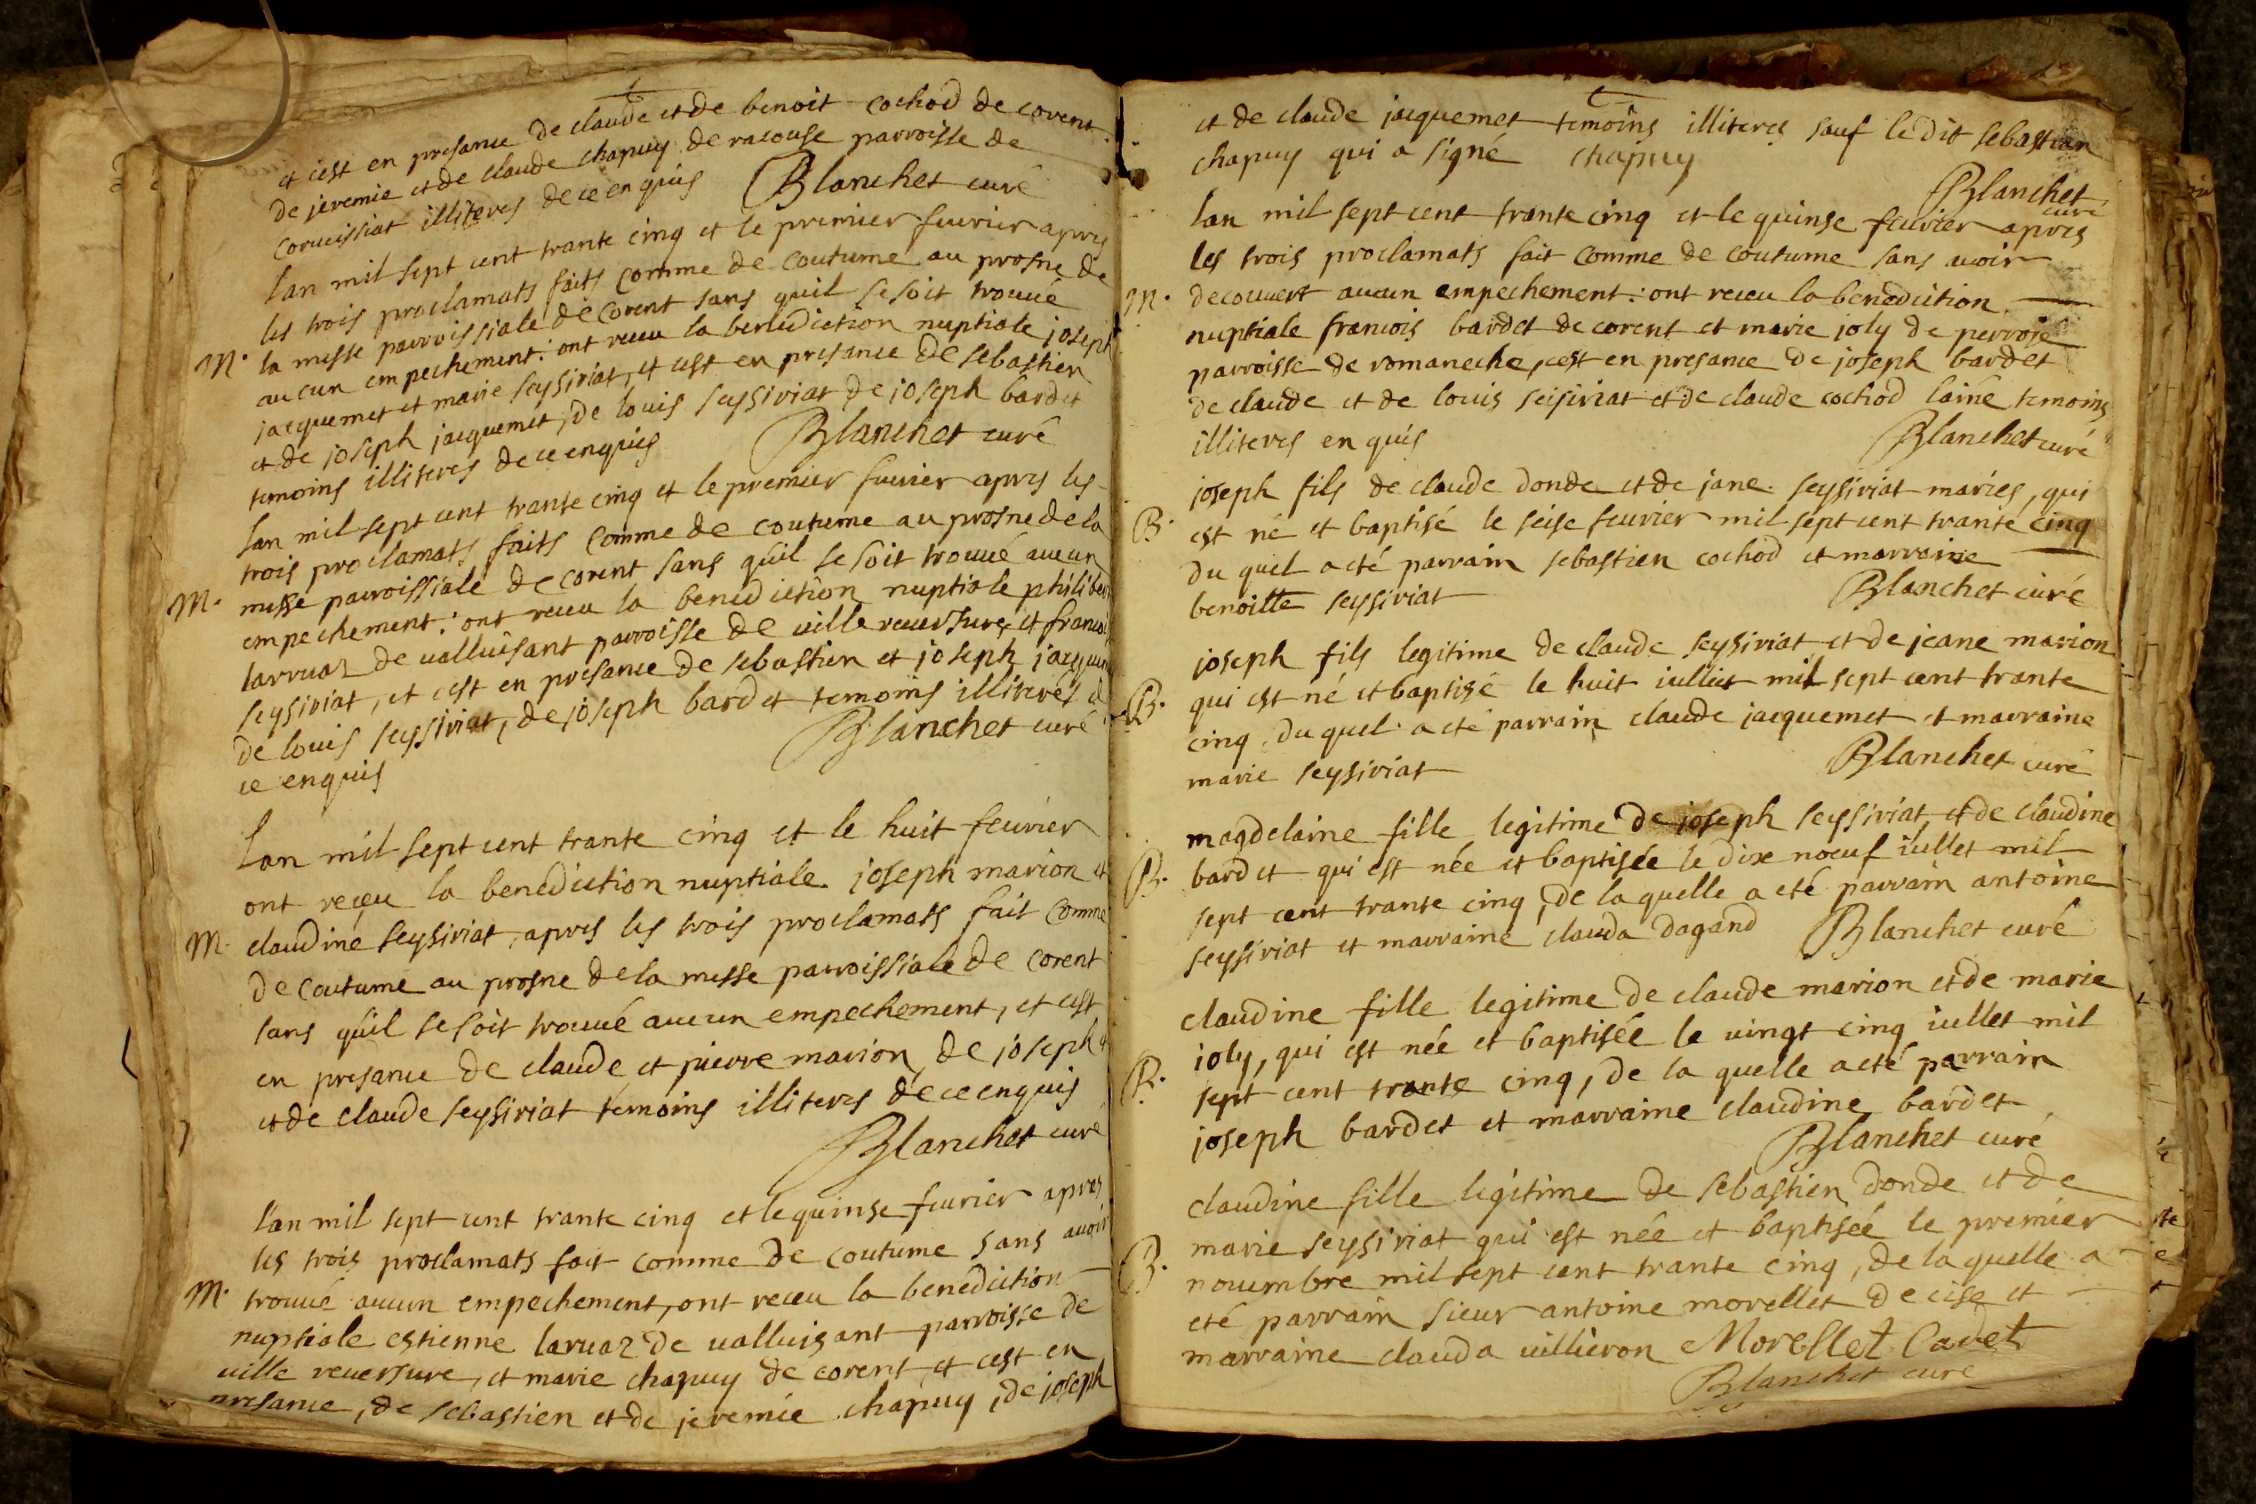 et cest en presance de claude et de benoit cochod de corent
de jeremie et de claude chapuy de racouse parroisse de
corveissiat illiteres de ce en quis Blanchet curé
lan mil sept cent trante cinq et le premier feuvrier apres
les trois proclamats faits comme de coutume au prosne de
la messe parroissiale de corent sans quil se soit trouué
M. aucun empechement: ont receu la benediction nuptiale joseph
jacquemet et marie seysiriat, et cest en presance de sebastien
et de joseph jacquemet, de louis seysiriat de joseph bardet
temoins illiteres de ce enquis Blanchet curé
lan mil sept cent trante cinq et le premier feuvrier apres les
trois proclamats faits comme de coutume au prosne de la
messe parroissiale de corent sans quil se soit trouué aucun
M. empechement: ont receu la benediction nuptiale philiber
larruaz de valluisant parroisse de ville reuersure, et francoi
seysiriat, et cest en presance de sebastien et joseph jacquem
de louis seyssiriat, de joseph bardet temoins illiteres d
ce enquis Blanchet curé
lan mil sept cent trante cinq et le huit feuvrier
ont reçeu la benediction nuptiale joseph marion et
M. claudine seysiriat, apres les trois proclamats fait comme
de coutume au prosne de la messe parroissiale de corent
sans quil se soit trouué aucun empechement, et cest
en presance de claude et pierre marion, de joseph
et de claude seysiriat temoins illiteres de ce enquis
Blanchet curé
lan mil sept cent trante cinq et le quinse feuvrier apres
les trois proclamats fait comme de coutume sans auoir
M. trouué aucun empechement, ont receu la benediction
nuptiale estienne laruaz de valluisant parroisse de
ville reuersure, et marie chapuy de corent, et cest en
presance, de sebastien et de jeremie chapuy, de joseph
et de claude jacquemet temoins illiteres sauf le dit sebastian
chapuy qui a signé chapuy
Blanchet curé
lan mil sept cent trante cinq et le quinse feuvrier apres
les trois proclamats fait comme de coutume sans auoir
M. decouuert aucun empechement: ont receu la benediction
nuptiale francois bardet de corent et marie joly de perroise
parroisse de romaneche, cest en presance de joseph bardet
de claude et de louis seisiriat et de claude cochod lainé temoins
illiteres en quis Blanchet curé
joseph fils de claude donde et de jane seysiriat mariés, qui
B. est né et baptisé le seise feuvrier mil sept cent trante cinq
du quel a eté parrain sebastien cochod et marraine
benoitte seysiriat Blanchet curé
joseph fils legitime de claude seysiriat et de jeane marion
B. qui est né et baptisé le huit iulliet mil sept cent trante
cinq, du quel a eté parrain claude jacquemet et marraine
marie seysiriat Blanchet curé
magdelaine fille legitime de joseph seyssiriat et de claudine
B. bardet qui est née et baptisée le dix noeuf iulliet mil
sept cent trante cinq, de la quelle a eté parrain antoine
seyssiriat et marraine clauda dagand Blanchet curé
claudine fille legitime de claude marion et de marie
joly, qui est née et baptisée le vingt cinq iulliet mil
B. sept cent trante cinq, de la quelle a eté parrain
joseph bardet et marraine claudine bardet
Blanchet curé
claudine fille legitime de sebastien donde et de
marie seysiriat qui est née et baptisée le premier
B. nouembre mil sept cent trante cinq, de la quelle a
eté parrain sieur antoine morellet de cise et
marraine clauda villieron Morellet Cadet
Blanchet curé